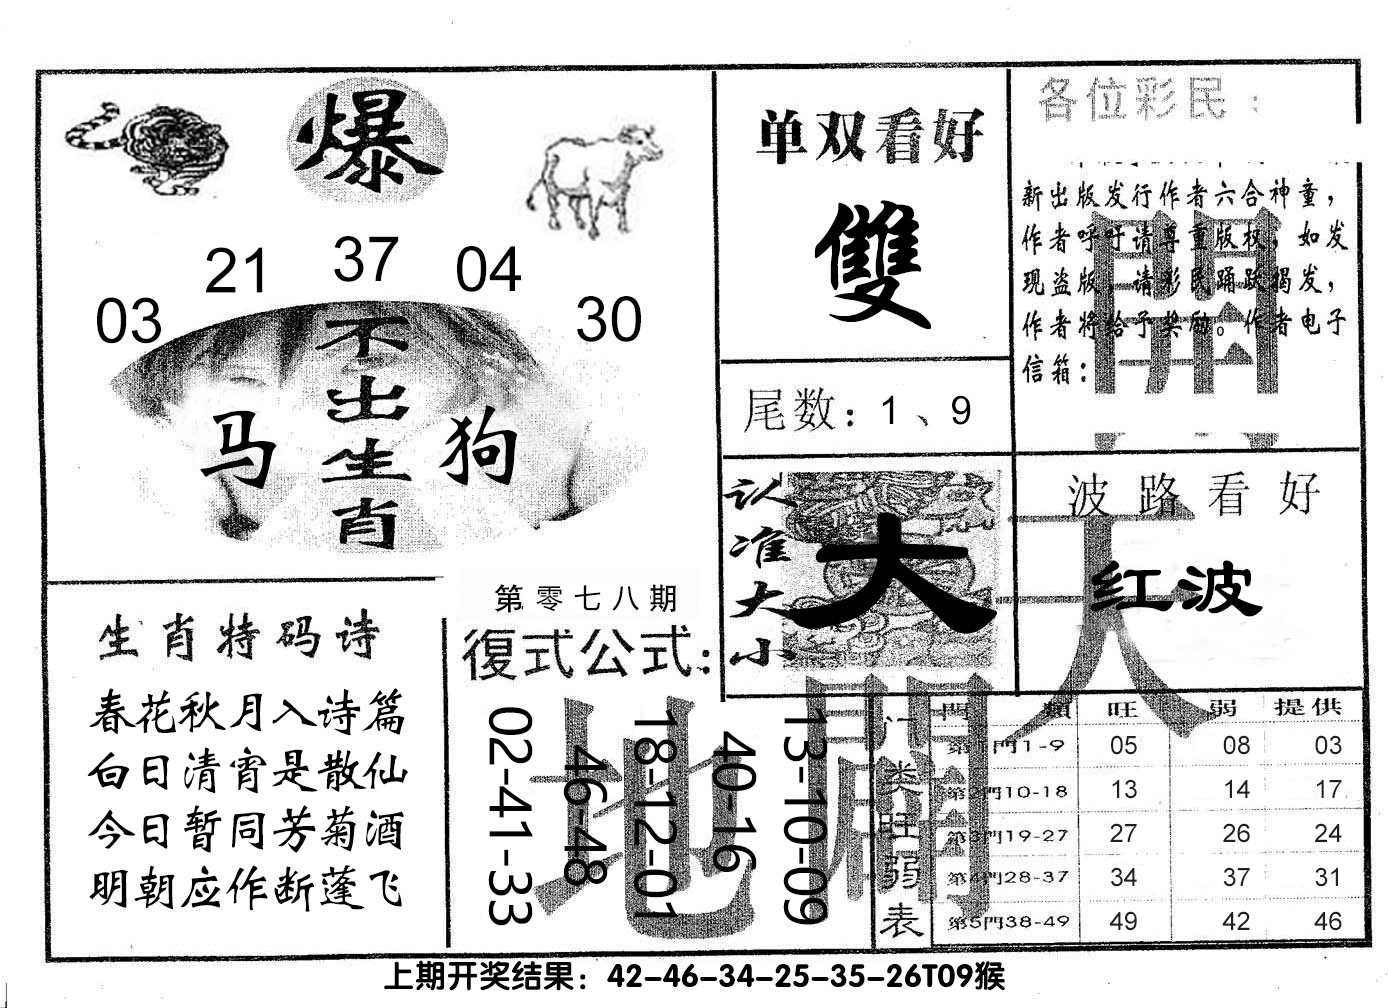 爆
03
21
37
04
30
不出生肖
马
狗
单双看好
雙
尾数：1、9
各位彩民：
新出版发行作者六合神童，
作者呼吁请尊重版权，如发
现盗版，请彩民踊跃揭发，
作者将给予奖励。作者电子
信箱：
開
认准大小
大
波路看好
红波
天
生肖特码诗
春花秋月入诗篇
白日清宵是散仙
今日暂同芳菊酒
明朝应作断蓬飞
第零七八期
復式公式：
02-41-33
46-48
18-12-01
40-16
13-10-09
地
開
门类旺弱表
門類 旺 弱 提供
第1門1-9 05 08 03
第2門10-18 13 14 17
第3門19-27 27 26 24
第4門28-37 34 37 31
第5門38-49 49 42 46
上期开奖结果：42-46-34-25-35-26T09猴